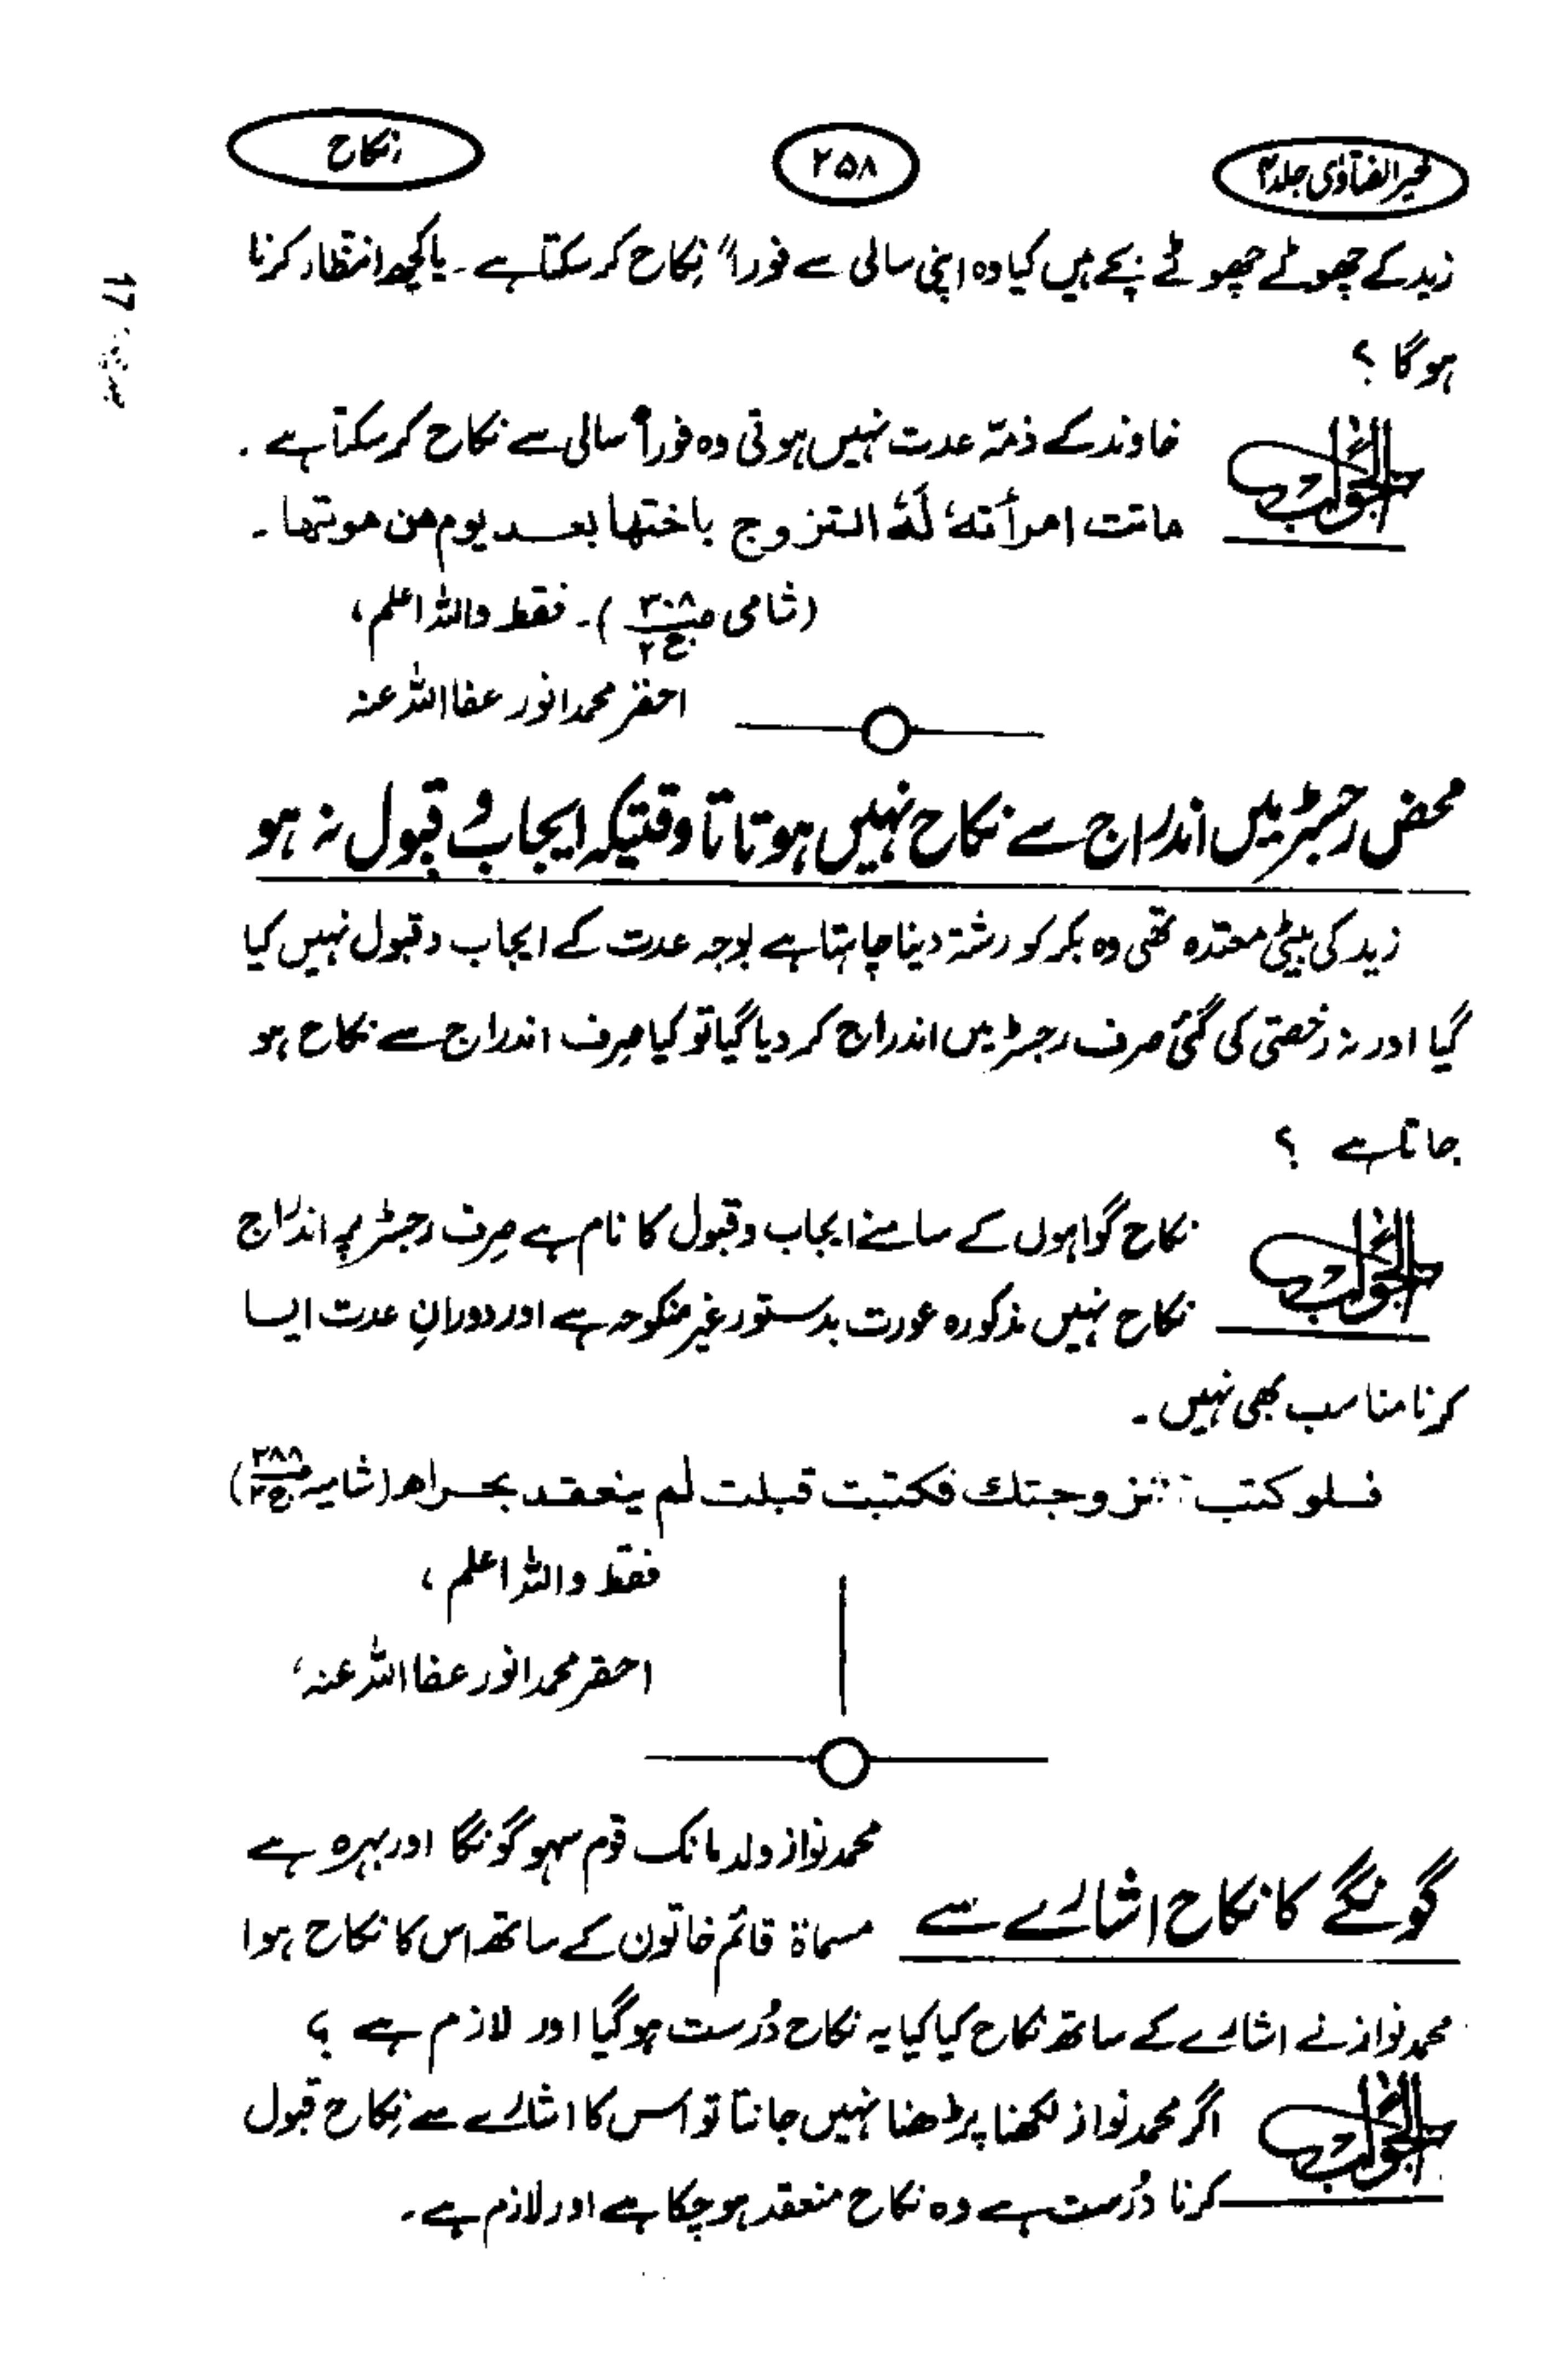 خیر الفتاویٰ جلد ۴
۲۵۸
نکاح
زید کے چھوٹے چھوٹے بچے ہیں کیا وہ اپنی سالی سے فوراً نکاح کر سکتا ہے ۔ یا کچھ انتظار کرنا
ہوگا ؟
الجواب
خاوند کے ذمّہ عدت نہیں ہوتی وہ فوراً سالی سے نکاح کر سکتا ہے ۔
ماتت امرأتہٗ لَہٗ التزوج باختھا بعد یوم من موتھا ۔
(شامی ص۳۰۸ ج۲) ۔ فقط واللہ اعلم ،
احقر محمد انور عفا اللہ عنہ
محض رجسٹر میں اندراج سے نکاح نہیں ہوتا تاوقتیکہ ایجاب و قبول نہ ہو
زید کی بیٹی معتدہ تھی وہ بکر کو رشتہ دینا چاہتا ہے بوجہ عدت کے ایجاب و قبول نہیں کیا
گیا اور نہ رخصتی کی گئی صرف رجسٹر میں اندراج کر دیا گیا تو کیا صرف اندراج سے نکاح ہو
جاتا ہے ؟
الجواب
نکاح گواہوں کے سامنے ایجاب و قبول کا نام ہے صِرف رجسٹر پہ اندراج
نکاح نہیں مذکورہ عورت بدستور غیر منکوحہ ہے اور دورانِ عدت ایسا
کرنا مناسب بھی نہیں ۔
فلو کتب تزوجتك فکتبت قبلت لم ینعقد بحر اھ (شامیہ ص۲۸۸ ج۲)
فقط واللہ اعلم ،
احقر محمد انور عفا اللہ عنہ ،
گونگے کا نکاح اشارے سے
محمد نواز ولد مانک قوم سہو گونگا اور بہرہ ہے
مسماۃ قائم خاتون کے ساتھ اس کا نکاح ہوا
محمد نواز نے اشارے کے ساتھ نکاح کیا کیا یہ نکاح دُرست ہو گیا اور لازم ہے ؟
الجواب
اگر محمد نواز لکھنا پڑھنا نہیں جانتا تو اُس کا اشارے سے نِکاح قبول
کرنا دُرست ہے وہ نکاح منعقد ہو چکا ہے اور لازم ہے ۔
17